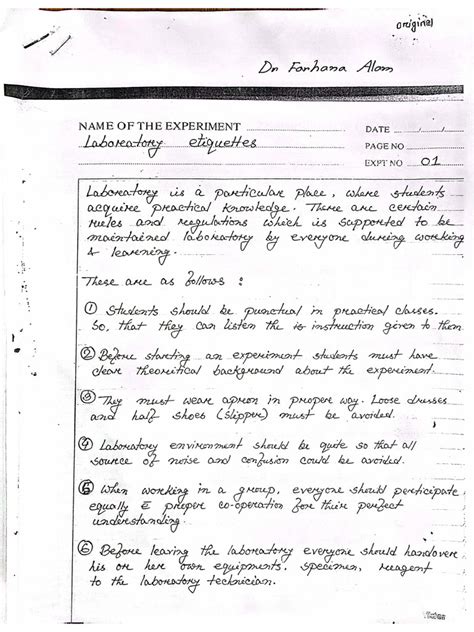 original
Dr Farhana Alam
NAME OF THE EXPERIMENT
DATE
Laboratory etiquettes
PAGE NO
EXPT NO 01
Laboratory is a particular place, where students
acquire practical knowledge. There are certain
rules and regulations which is supported to be
maintained laboratory by everyone during working
& learning.
These are as follows :
① Students should be punctual in practical classes.
So, that they can listen the is instruction given to them
② Before starting an experiment students must have
clear theoritical background about the experiment.
③ They must wear apron in proper way. Loose dresses
and half shoes (slipper) must be avoided.
④ Laboratory environment should be quite so that all
source of noise and confusion could be avoided.
⑤ When working in a group, everyone should participate
equally & proper co-operation for their perfect
understanding.
⑥ Before leaving the laboratory everyone should handover
his or her own equipments, specimen, reagent
to the laboratory technician.